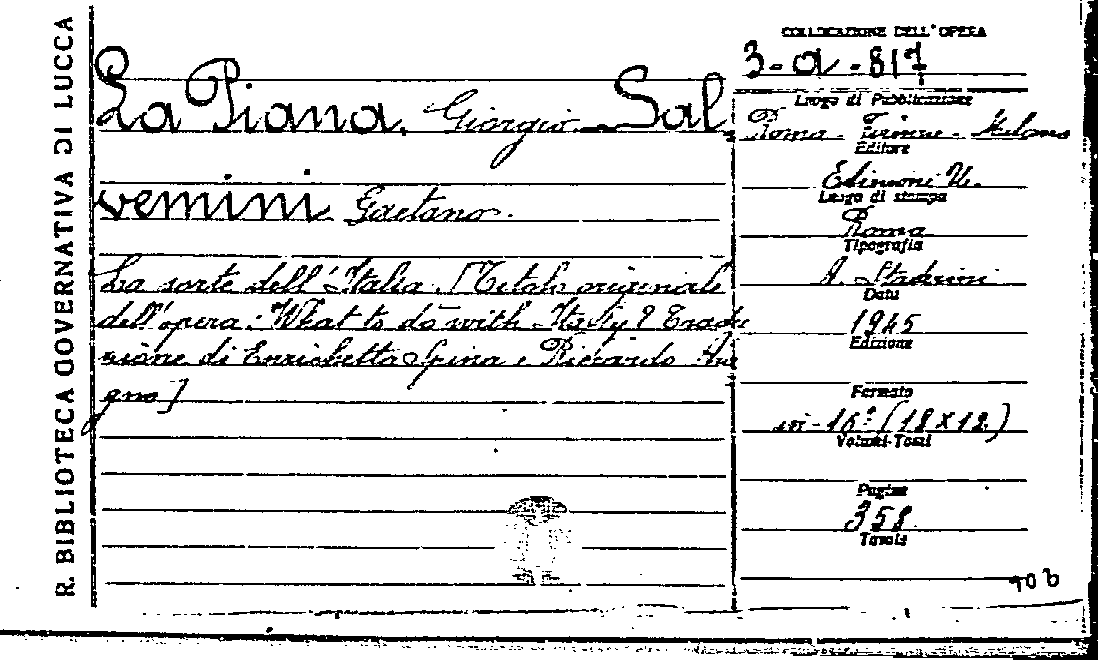 R. BIBLIOTECA GOVERNATIVA DI LUCCA
La Piana Giorgio - Sal
vemini Gaetano.
La sorte dell'Italia. [Titolo originale
dell'opera: What to do with Italy? Tradu
zione di Enrichetta Spina e Riccardo
gno]
COLLOCAZIONE DELL'OPERA
3-a-817
Luogo di Pubblicazione
Roma - Firenze - Milano
Editore
Edizioni U.
Luogo di stampa
Roma
Tipografia
A. Staderini
Data
1945
Edizione
Formato
in-16º (18x12)
Volumi-Tomi
Pagine
358
Tavole